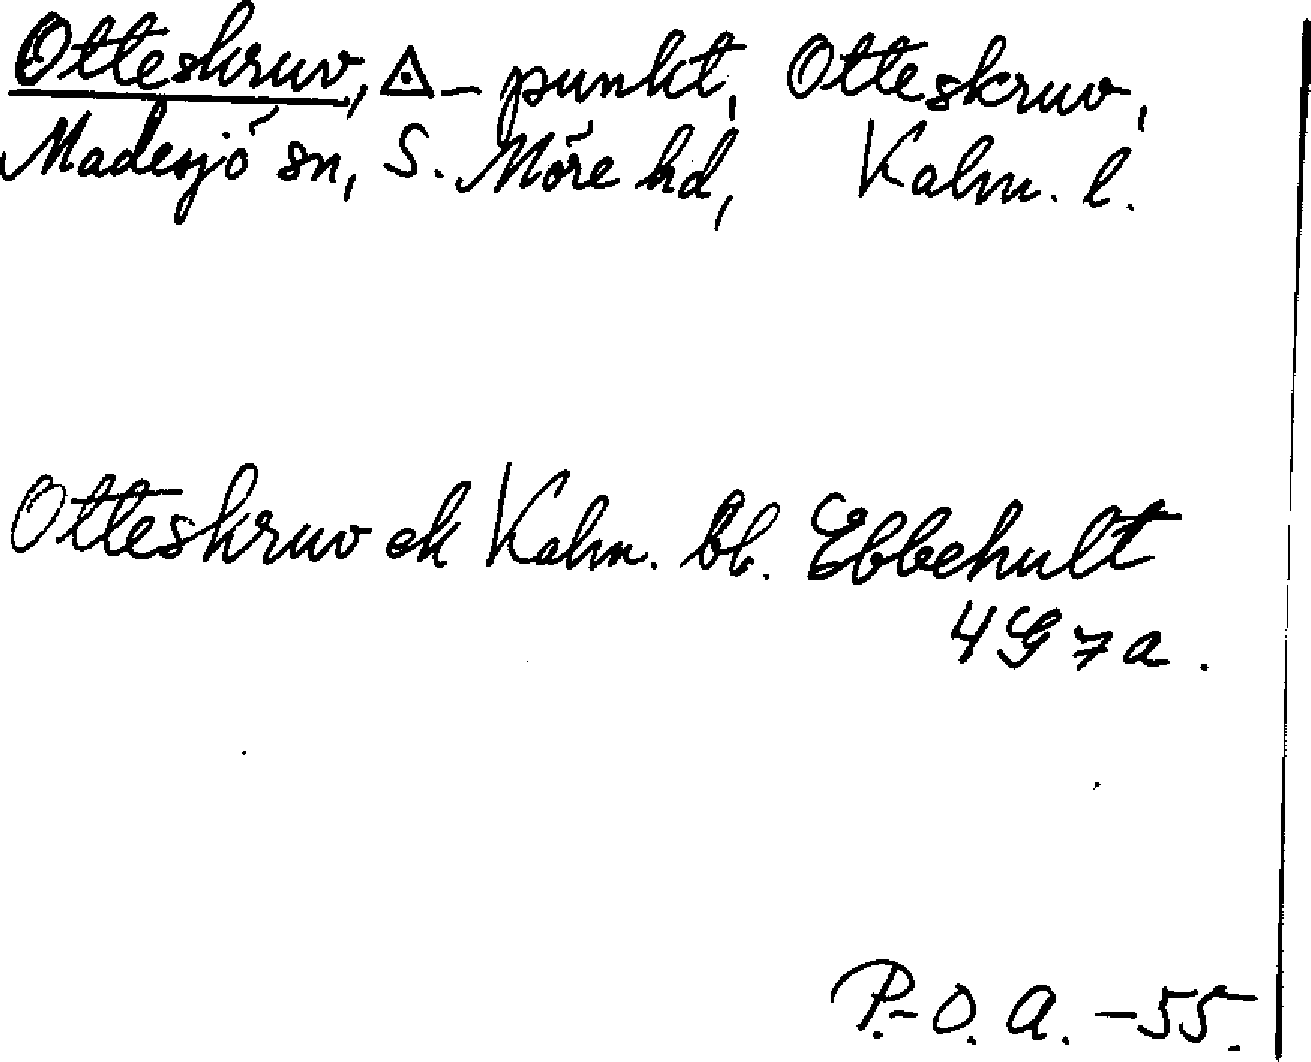 Otteskruv, ◬-punkt, Otteskruv,
Madesjö sn, S. Möre hd, Kalm. l.
Otteskruv ek Kalm. bl. Ebbehult
4G7a.
P.-O. A. -55.